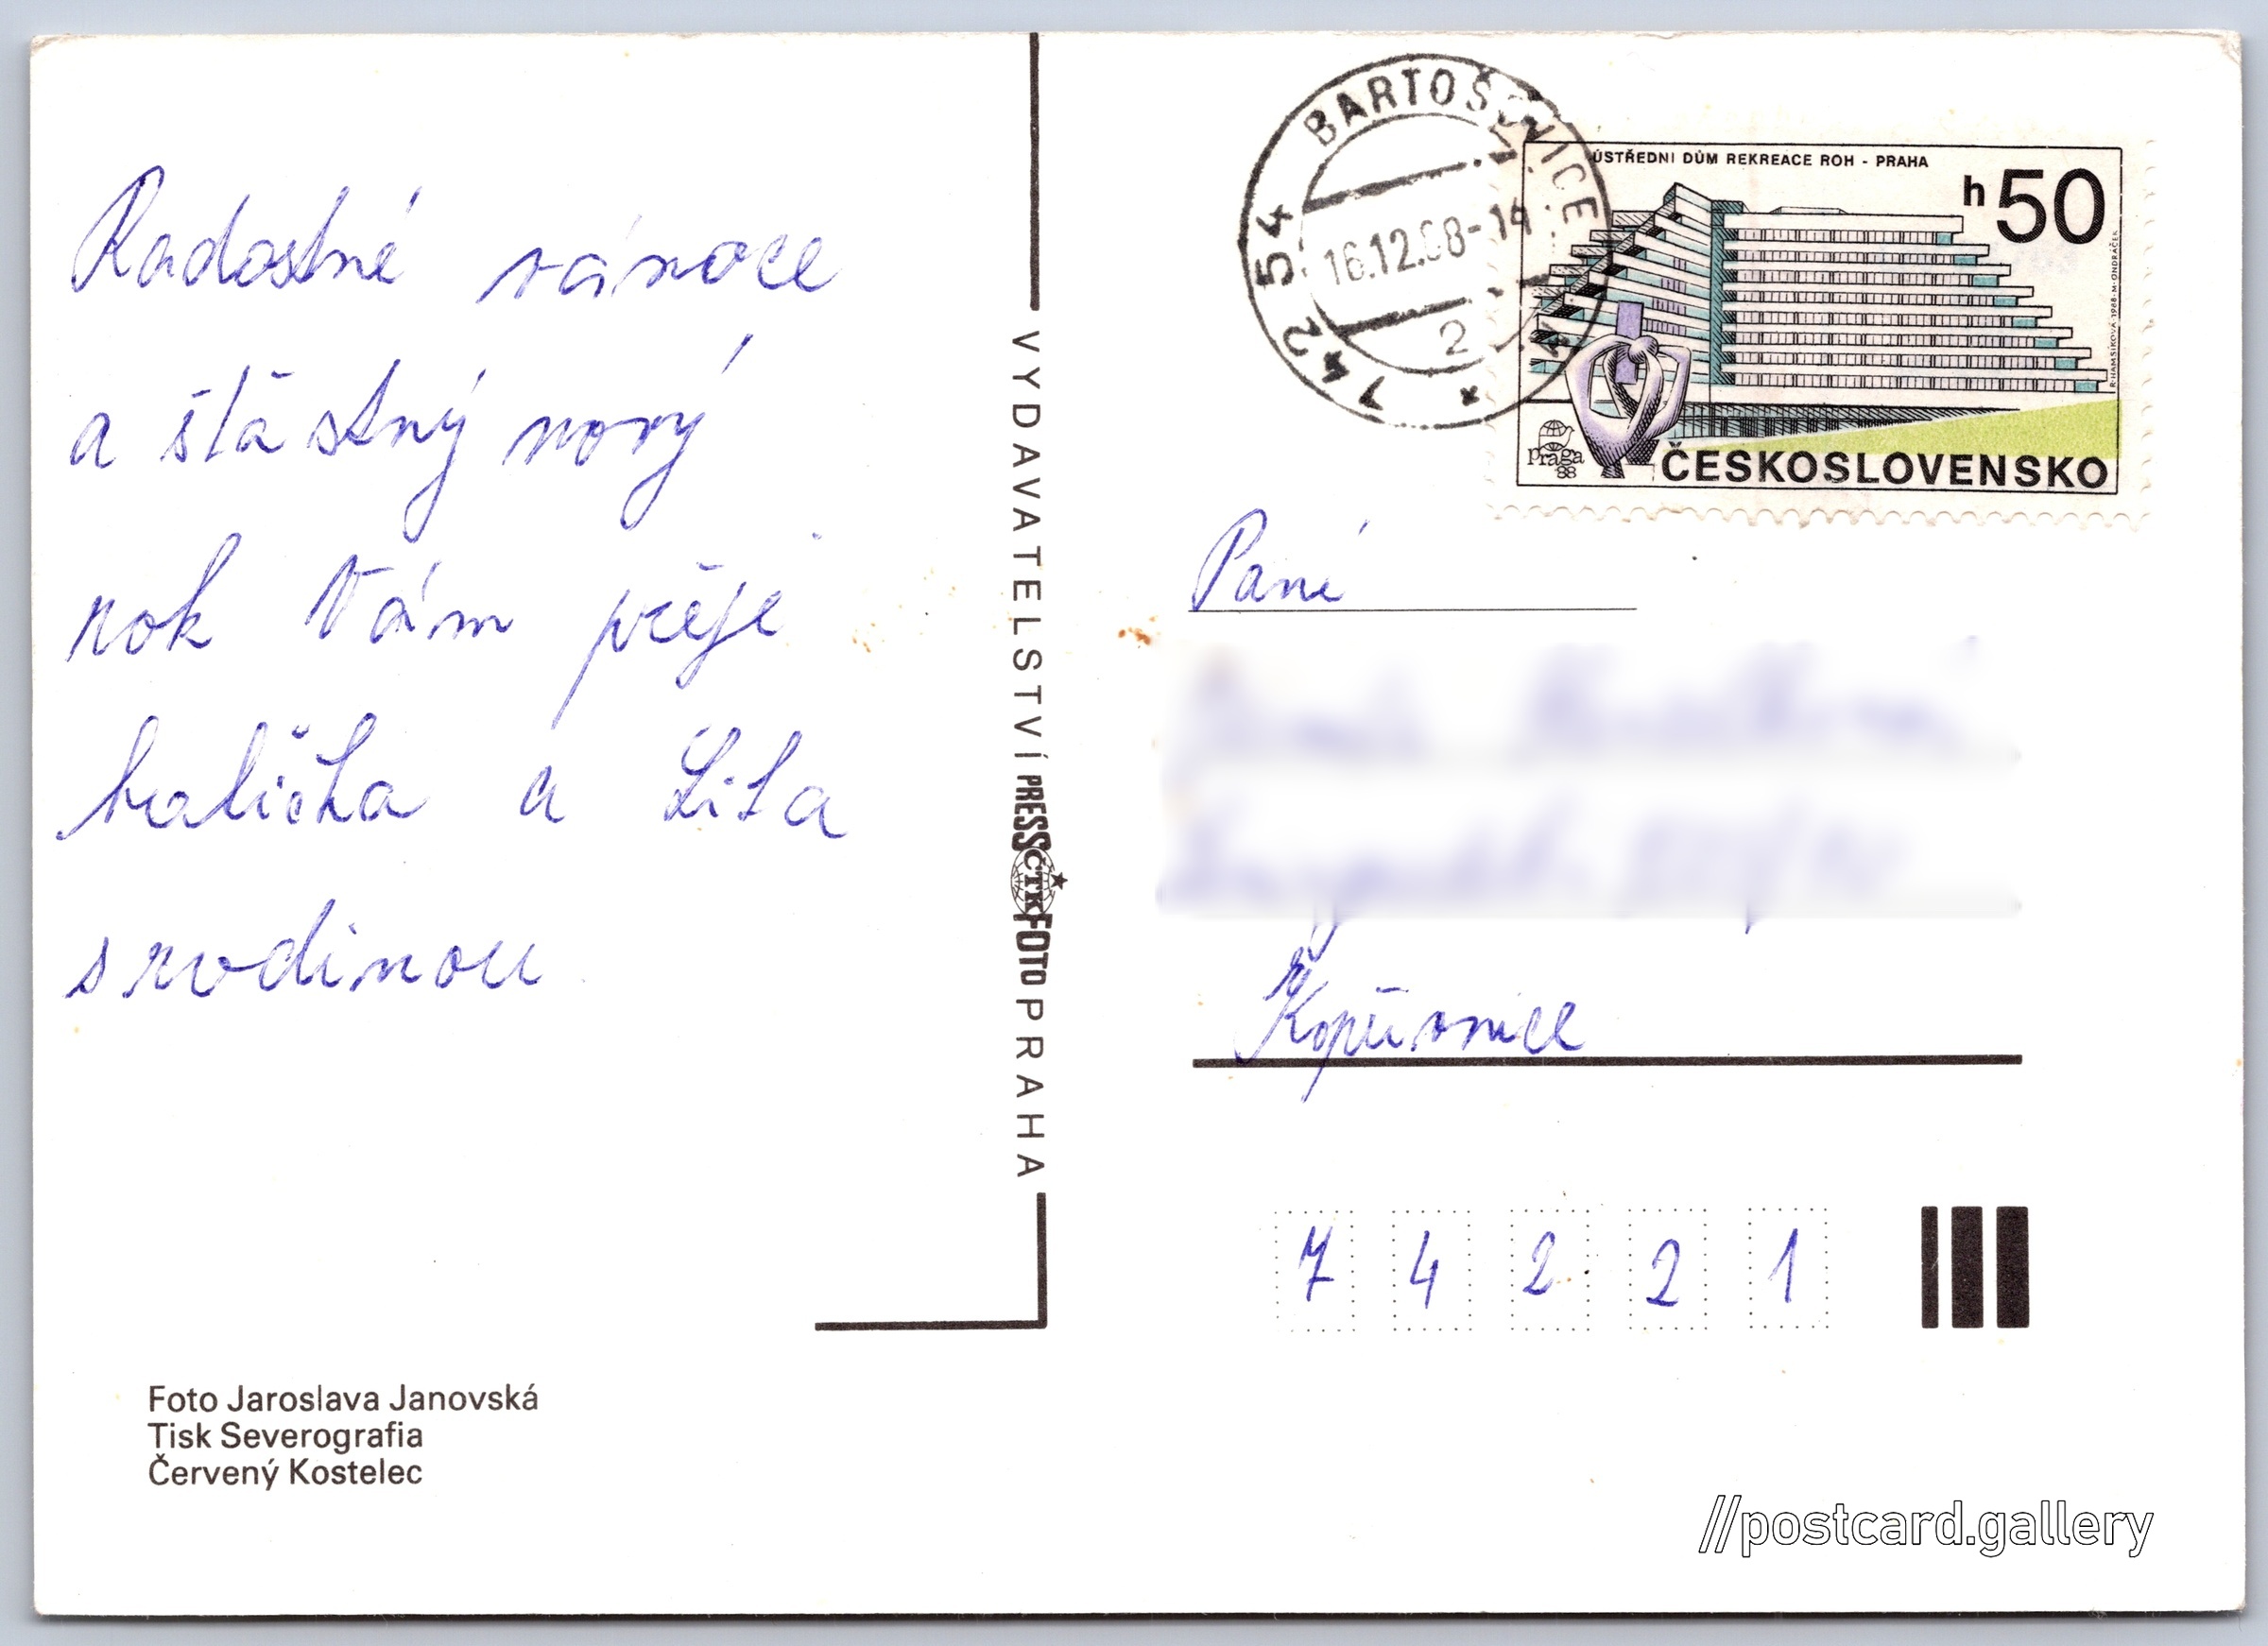 Radostné vánoce
a šťastný nový
rok Vám přeje
s rodinou
VYDAVATELSTVÍ PRESSFOTO PRAHA
ČTK
Foto Jaroslava Janovská
Tisk Severografia
Červený Kostelec
BARTOŠOVICE
742 54
16.12.88-14
2
ÚSTŘEDNÍ DŮM REKREACE ROH - PRAHA
h50
R. HAMSÍKOVÁ 1988 - M. ONDRÁČEK
praga
88
ČESKOSLOVENSKO
Paní
Kopřivnice
7 4 2 2 1
//postcard.gallery